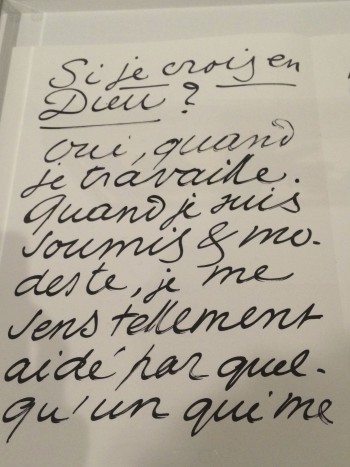 Si je crois en
Dieu ?
oui, quand
je travaille.
Quand je suis
soumis & mo-
deste, je me
sens tellement
aidé par quel-
qu'un qui me